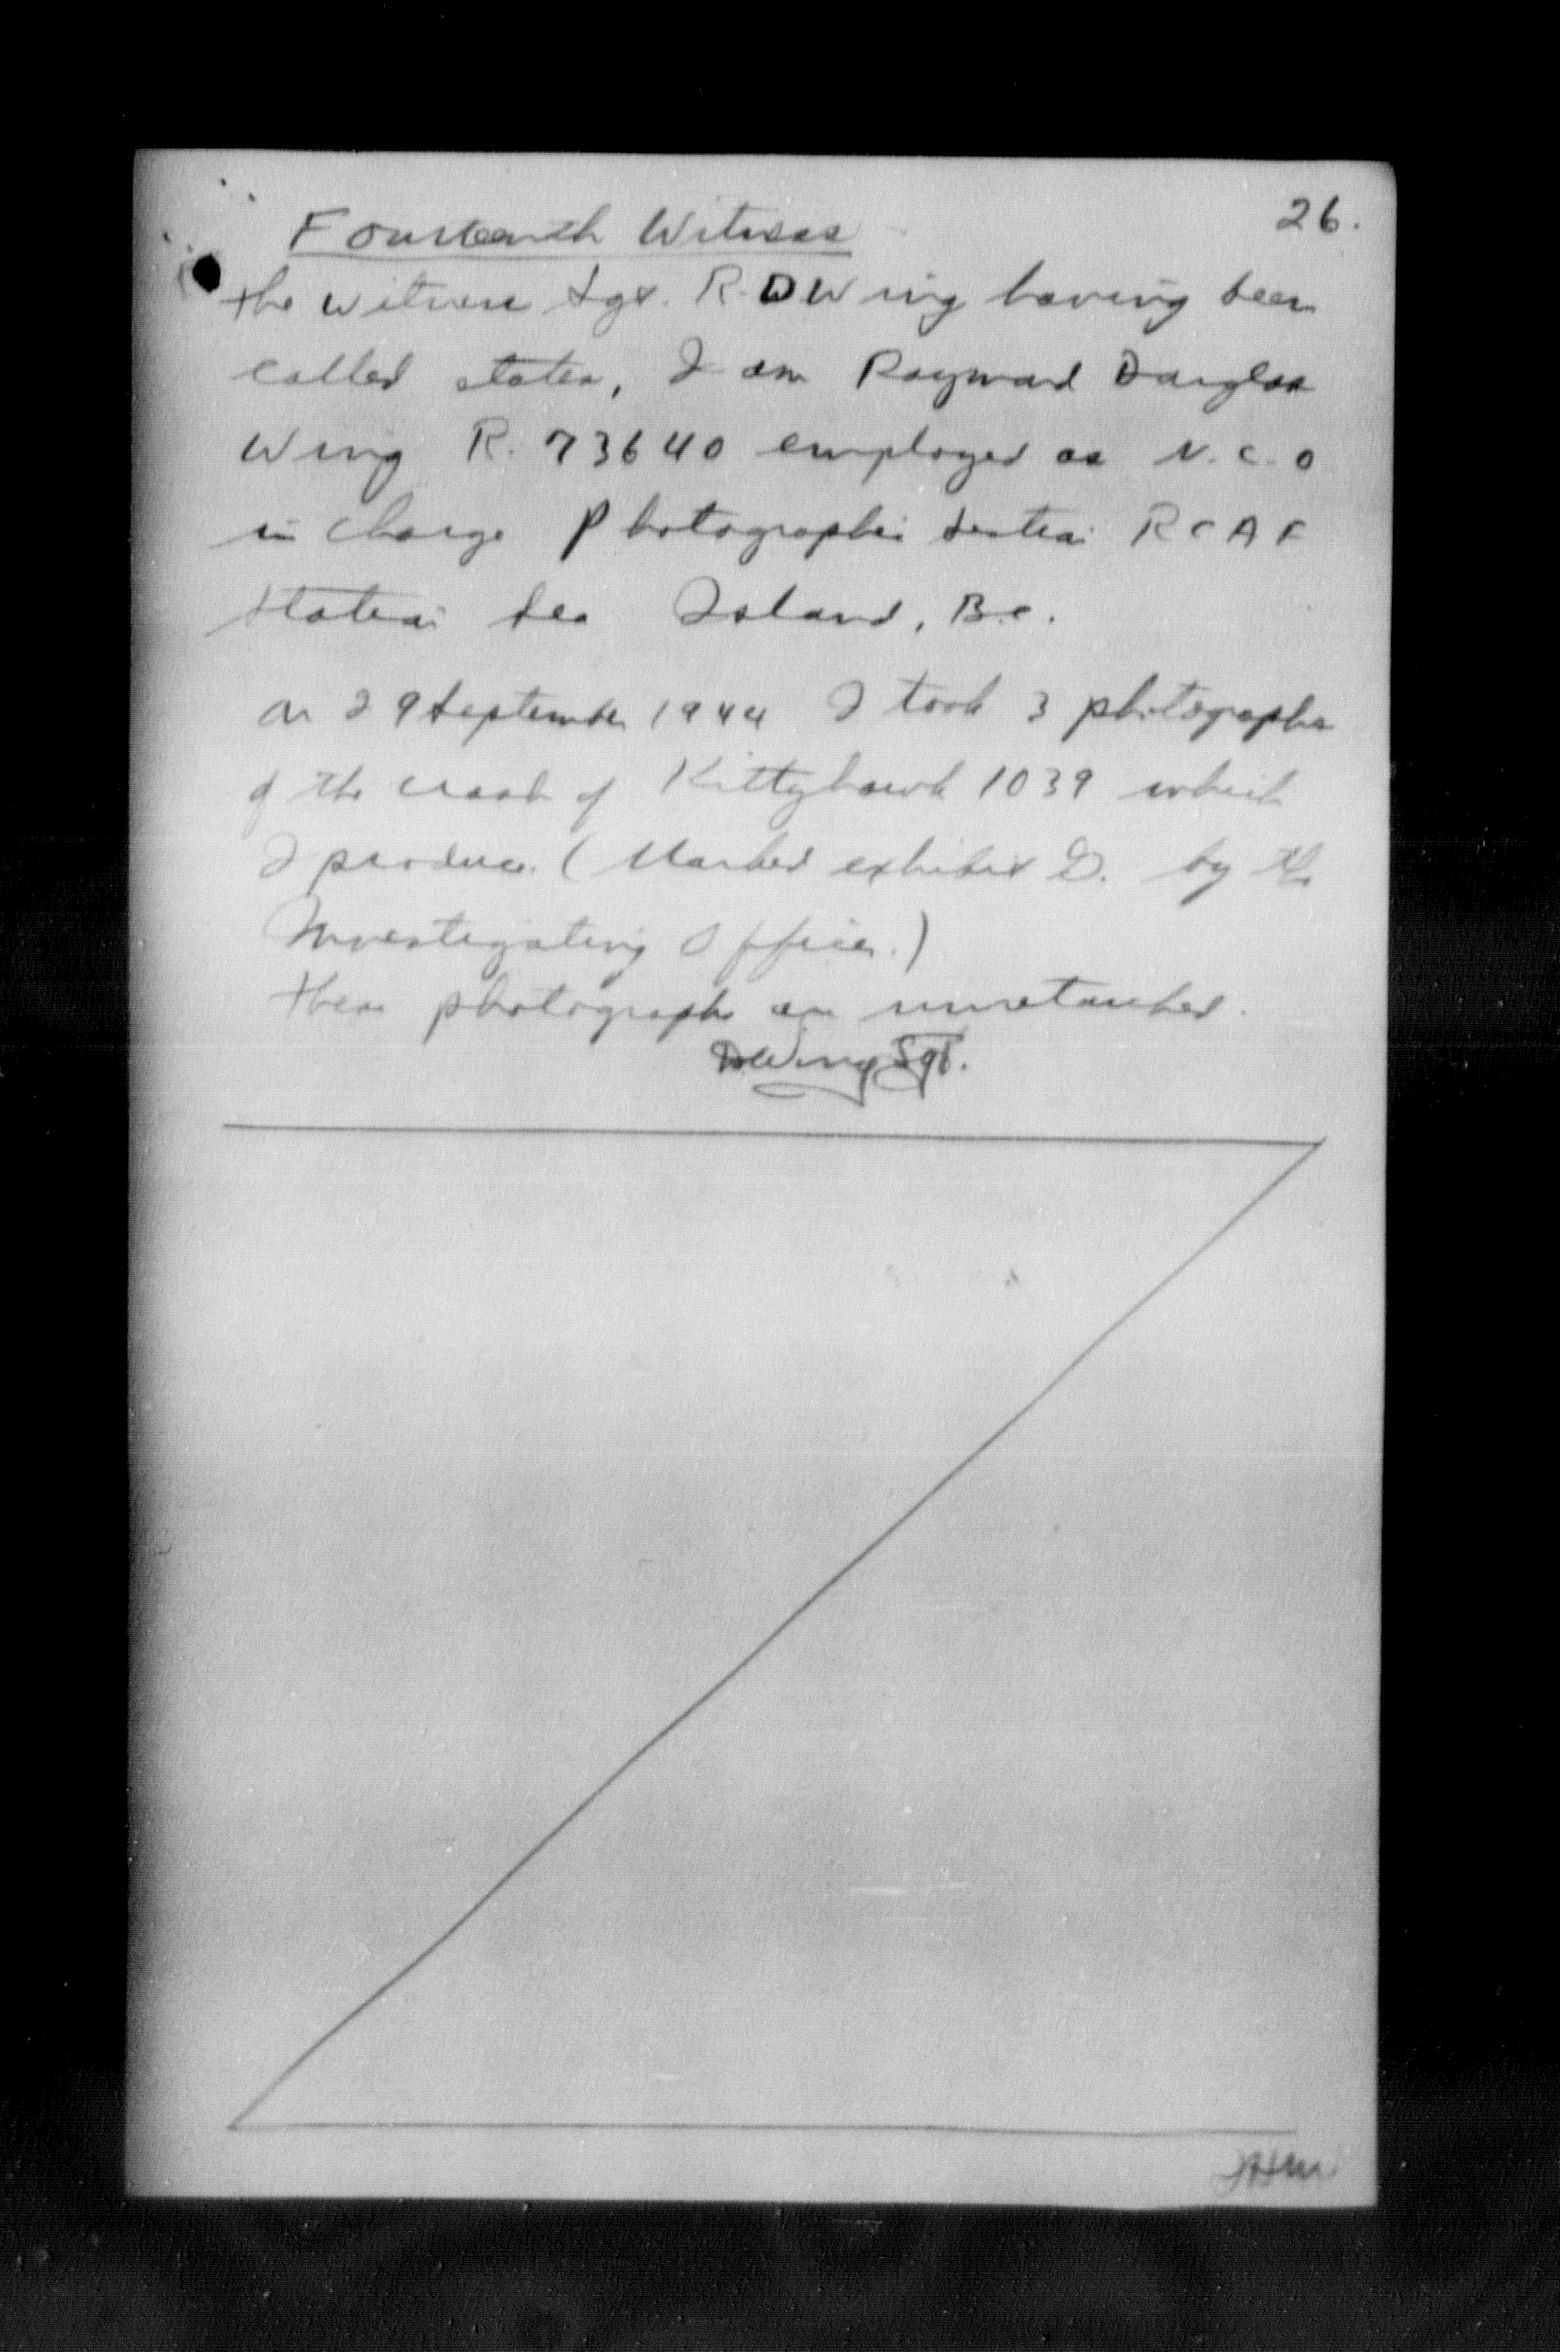 26.
Fourteenth Witness
the witness Sgt. R. D Wing having been
called states, I am Raymond Douglas
Wing R. 73640 employed as N.C.O
in charge Photographic Section RCAF
Station Sea Island, B.C.
On 29 September 1944 I took 3 photographs
of the crash of Kittyhawk 1039 which
I produce. (Marked exhibit D. by the
Investigating Officer.)
These photographs are unretouched.
DWing Sgt.